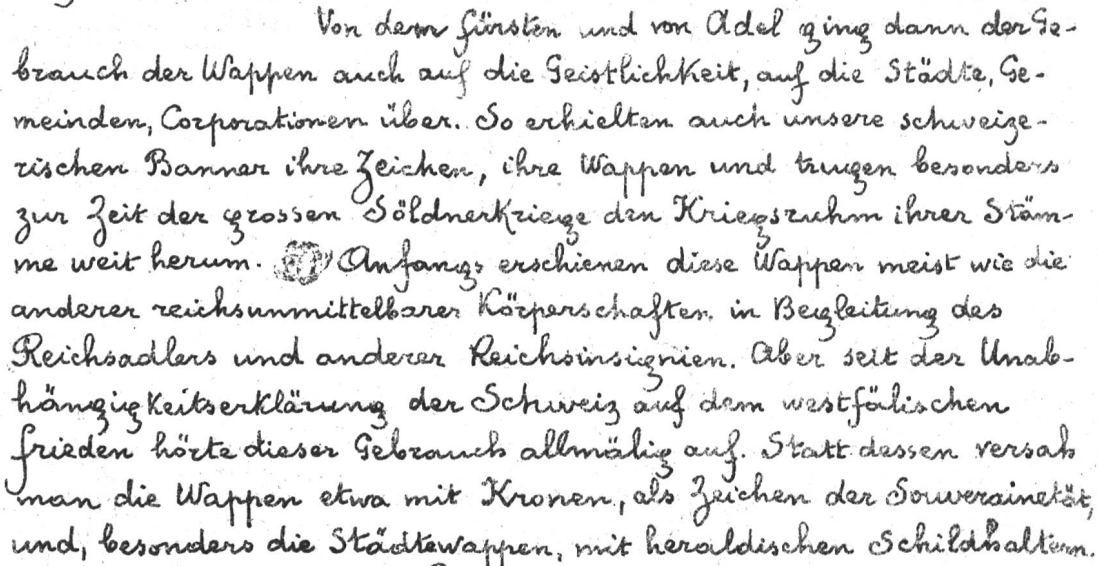 Von dem Fürsten und von Adel ging dann der Ge-
brauch der Wappen auch auf die Geistlichkeit, auf die Städte, Ge-
meinden, Corporationen über. So erhielten auch unsere schweize-
rischen Banner ihre Zeichen, ihre Wappen und trugen besonders
zur Zeit der grossen Söldnerkriege den Kriegsruhm ihrer Stäm-
me weit herum. Anfangs erschienen diese Wappen meist wie die
anderer reichsunmittelbarer Körperschaften in Begleitung des
Reichsadlers und anderer Reichsinsignien. Aber seit der Unab-
hängigkeitserklärung der Schweiz auf dem westfälischen
Frieden hörte dieser Gebrauch allmälig auf. Statt dessen versah
man die Wappen etwa mit Kronen, als Zeichen der Souverainetät,
und, besonders die Städtewappen, mit heraldischen Schildhaltern.